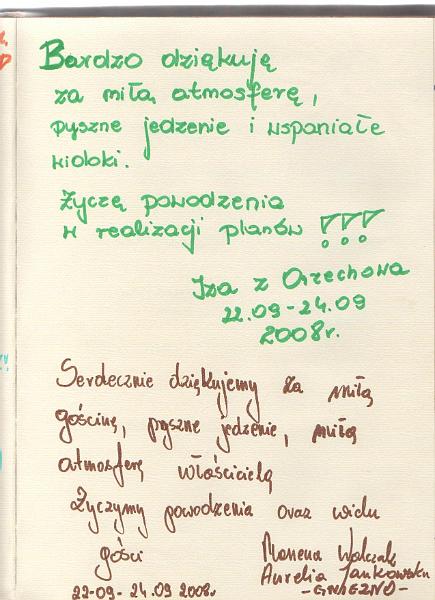 Bardzo dziękuję
za miłą atmosferę,
pyszne jedzenie i wspaniałe
widoki.
Życzę powodzenia
w realizacji planów !!!
Iza z Orzechowa
22.09-24.09
2008r.
Serdecznie dziękujemy za miłą
gościnę, pyszne jedzenie, miłą
atmosferę właścicielą
Życzymy powodzenia oraz wielu
gości
Marzena Walczak
Aurelia Jankowska
22-09- 24.09 2008r.
-GNIEZNO-